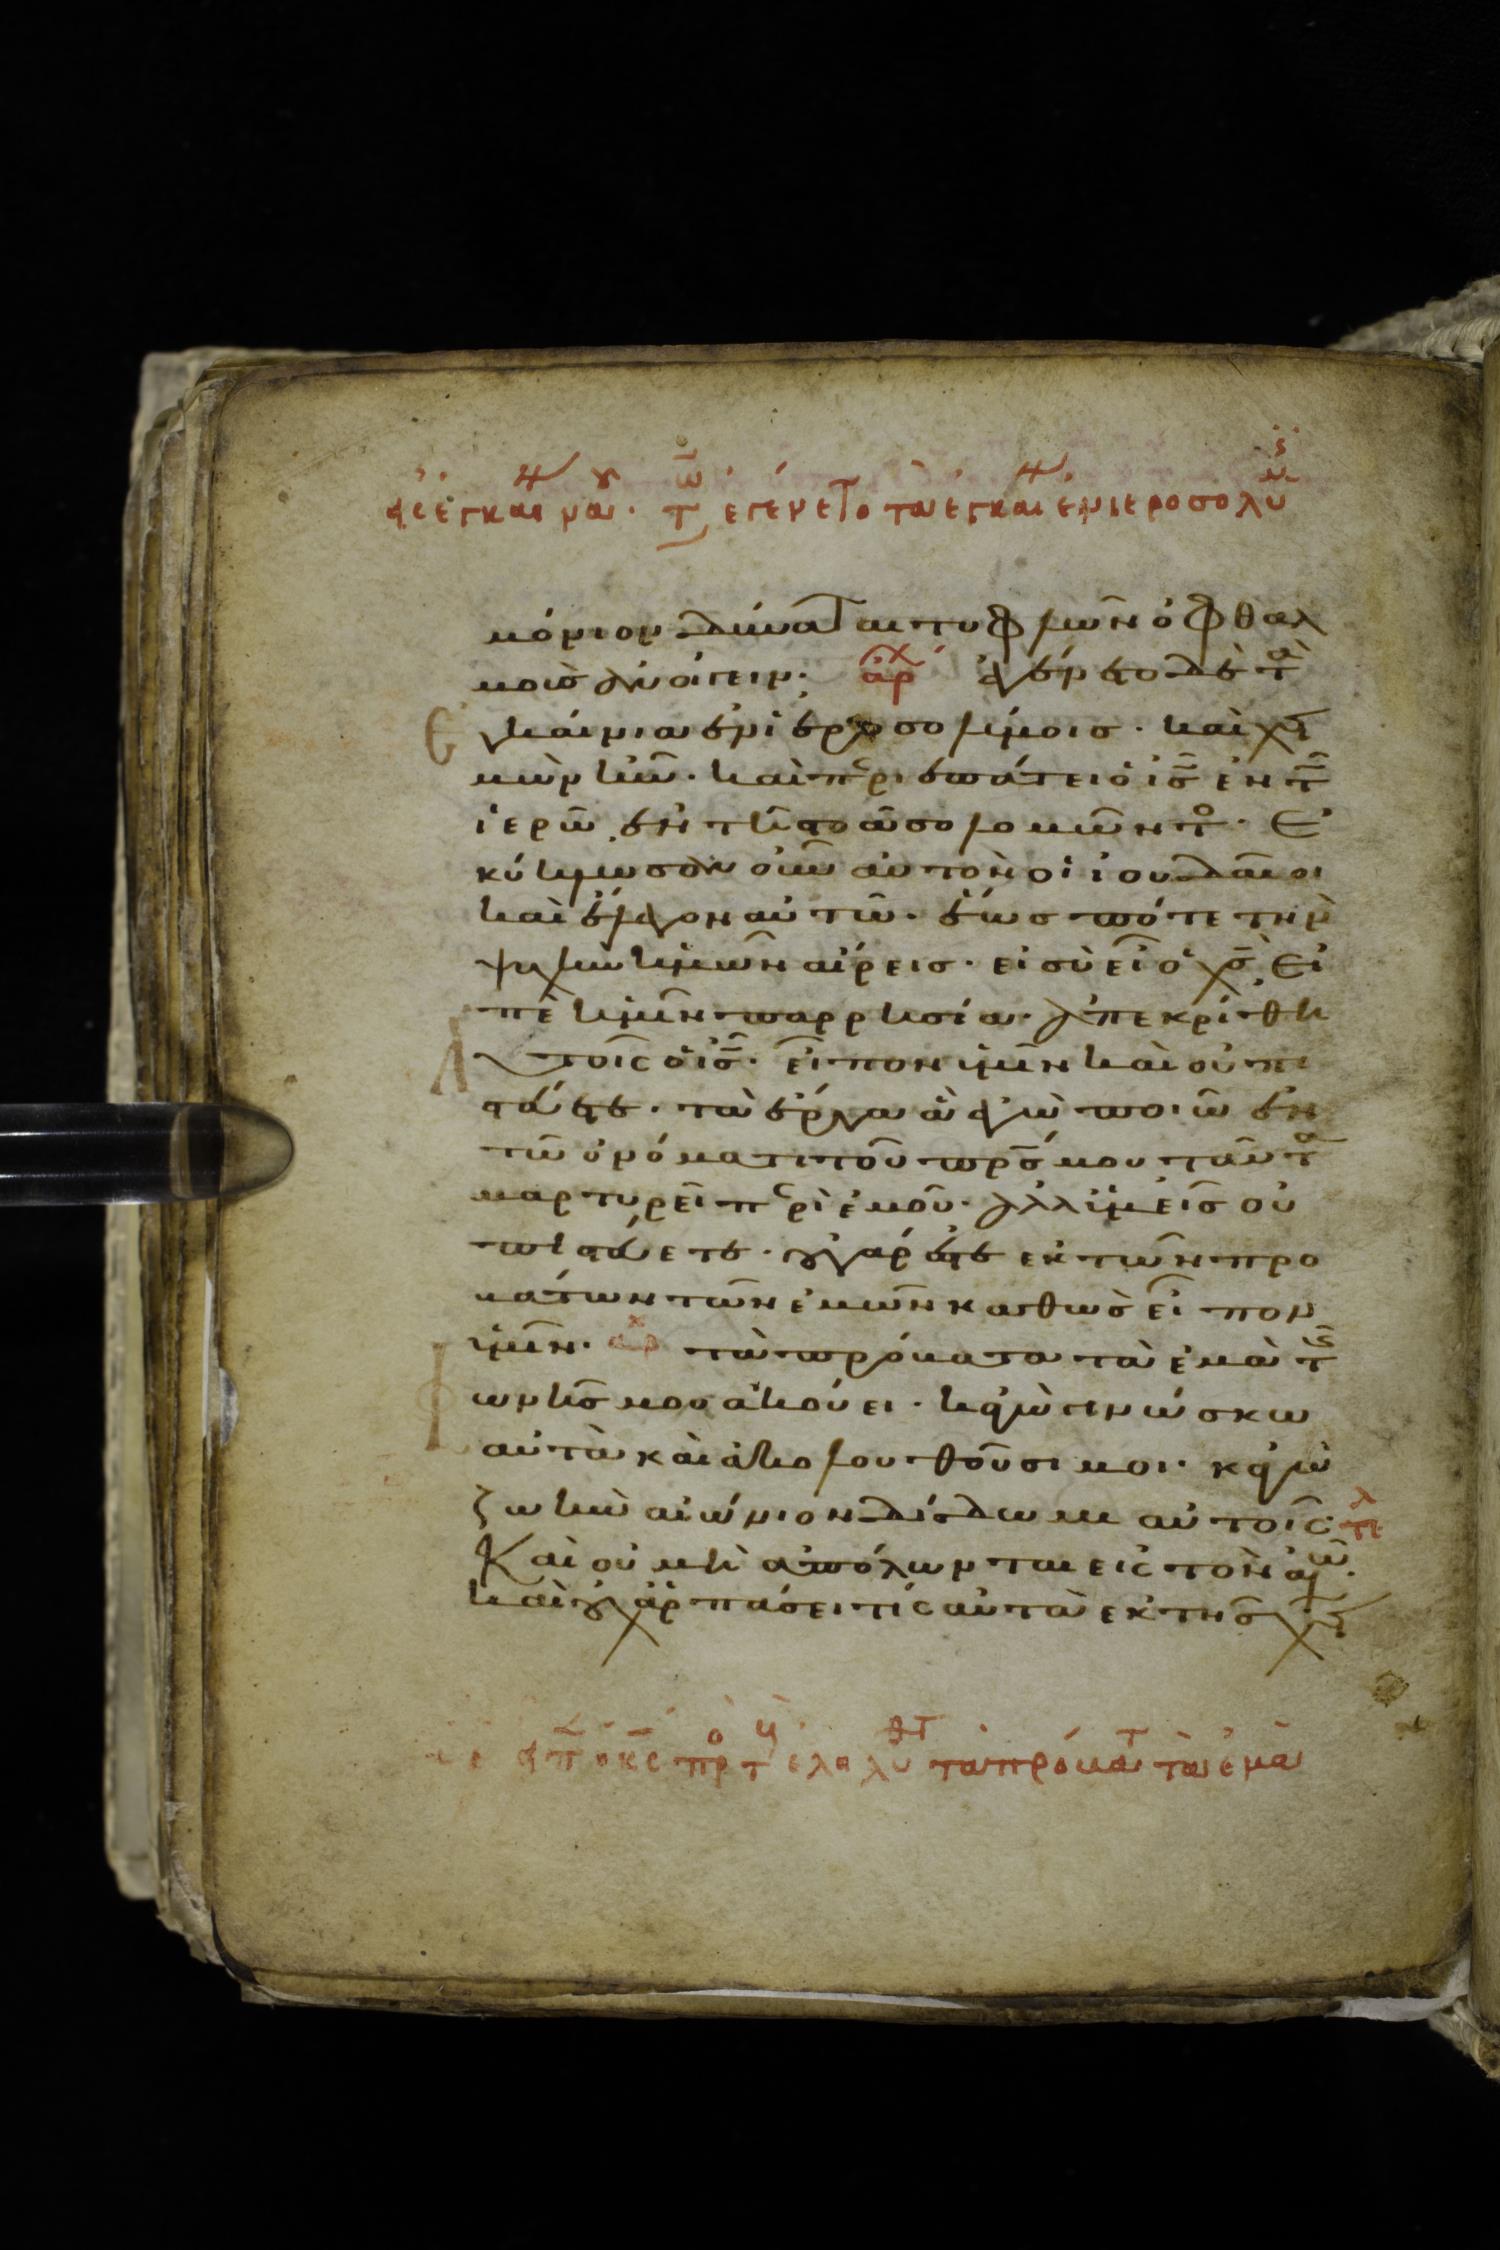 εἰς ἐγκαίνια. τῶ ἐγένετο τὰ ἐγκαίνια ἐν ἱεροσολύμ
μόνιον δύναται τυφλῶν ὀφθαλ
μοὺς ἀνοίγειν· ἀρχ ἐγένετο δὲ τὰ
ἐγκαίνια ἐν ἱεροσολύμοις· καὶ χει
μὼν ἦν· καὶ περιεπάτει ὁ ις ἐν τῶ
ἱερῶ ἐν τῆ στοᾶ σολομῶντος· Ἐ
κύκλωσαν οὖν αὐτὸν οἱ ἰουδαῖοι
καὶ ἔλεγον αὐτῶ· ἕως πότε τὴν
ψυχὴν ἡμῶν αἴρεις· εἰ σὺ εἶ ὁ χς Εἰ
πὲ ἡμῖν παρρησία· ἀπεκρίθη
αὐτοῖς ὁ ις· εἶπον ὑμῖν καὶ οὐ πι
στεύετε· τὰ ἔργα ἃ ἐγὼ ποιῶ ἐν
τῶ ὀνόματι τοῦ πρς μου ταῦτα
μαρτυρεῖ περὶ ἐμοῦ· ἀλλ ὑμεῖς οὐ
πιστεύετε· οὐ γάρ ἐστε ἐκ τῶν προ
βάτων τῶν ἐμῶν καθὼς εἶπον
ὑμῖν· ἀρχ τὰ πρόβατα τὰ ἐμὰ τῆς
φωνῆς μου ἀκούει· κἀγὼ γινώσκω
αὐτὰ καὶ ἀκολουθοῦσι μοι· κἀγὼ
ζωὴν αἰώνιον δίδωμι αὐτοῖς· τελ
Καὶ οὐ μὴ ἀπόλωνται εἰς τὸν αἰῶ·
καὶ οὐχ ἁρπάσει τίς αὐτὰ ἐκ τῆς χει
εἶπεν ὁ κς πρὸς τ ἐλη λυθτ τὰ πρόβατ τὰ ἐμὰ